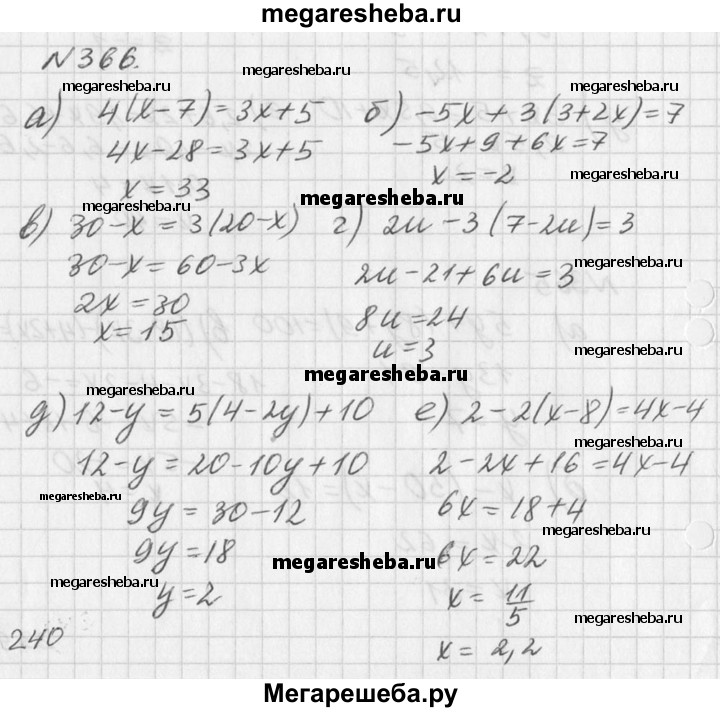 megaresheba.ru
№366.
megaresheba.ru megaresheba.ru megaresheba.ru
а) 4(x-7)=3x+5 б) -5x+3(3+2x)=7
4x-28=3x+5 -5x+9+6x=7
x=33 x=-2
megaresheba.ru megaresheba.ru megaresheba.ru
в) 30-x=3(20-x) г) 2u-3(7-2u)=3
30-x=60-3x 2u-21+6u=3
megaresheba.ru
2x=30 8u=24
x=15 u=3
megaresheba.ru megaresheba.ru
megaresheba.ru
д) 12-y=5(4-2y)+10 е) 2-2(x-8)=4x-4
12-y=20-10y+10 2-2x+16=4x-4
megaresheba.ru megaresheba.ru
9y=30-12 6x=18+4
megaresheba.ru
9y=18 6x=22
megaresheba.ru
megaresheba.ru
y=2 x=11/5
megaresheba.ru
240 x=2,2
Мегарешеба.ру